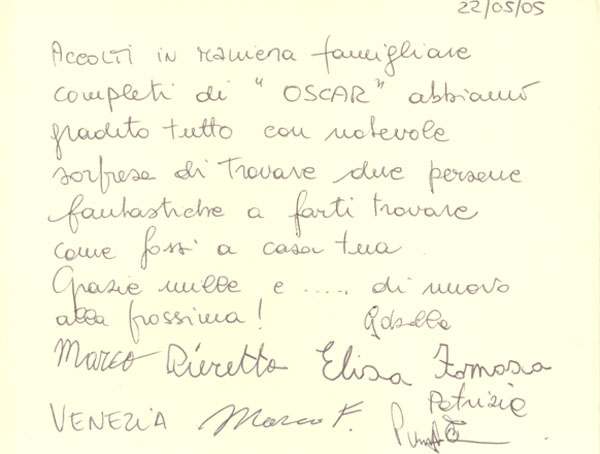 22/05/05
ACCOLTI in maniera famigliare
completi di " OSCAR" abbiamo
gradito tutto con notevole
sorpresa di trovare due persone
fantastiche a farti trovare
come fossi a casa tua
Grazie mille e ..... di nuovo
alla prossima!
Marco Pieretto Elisa
Patrizia
VENEZIA Marco F.